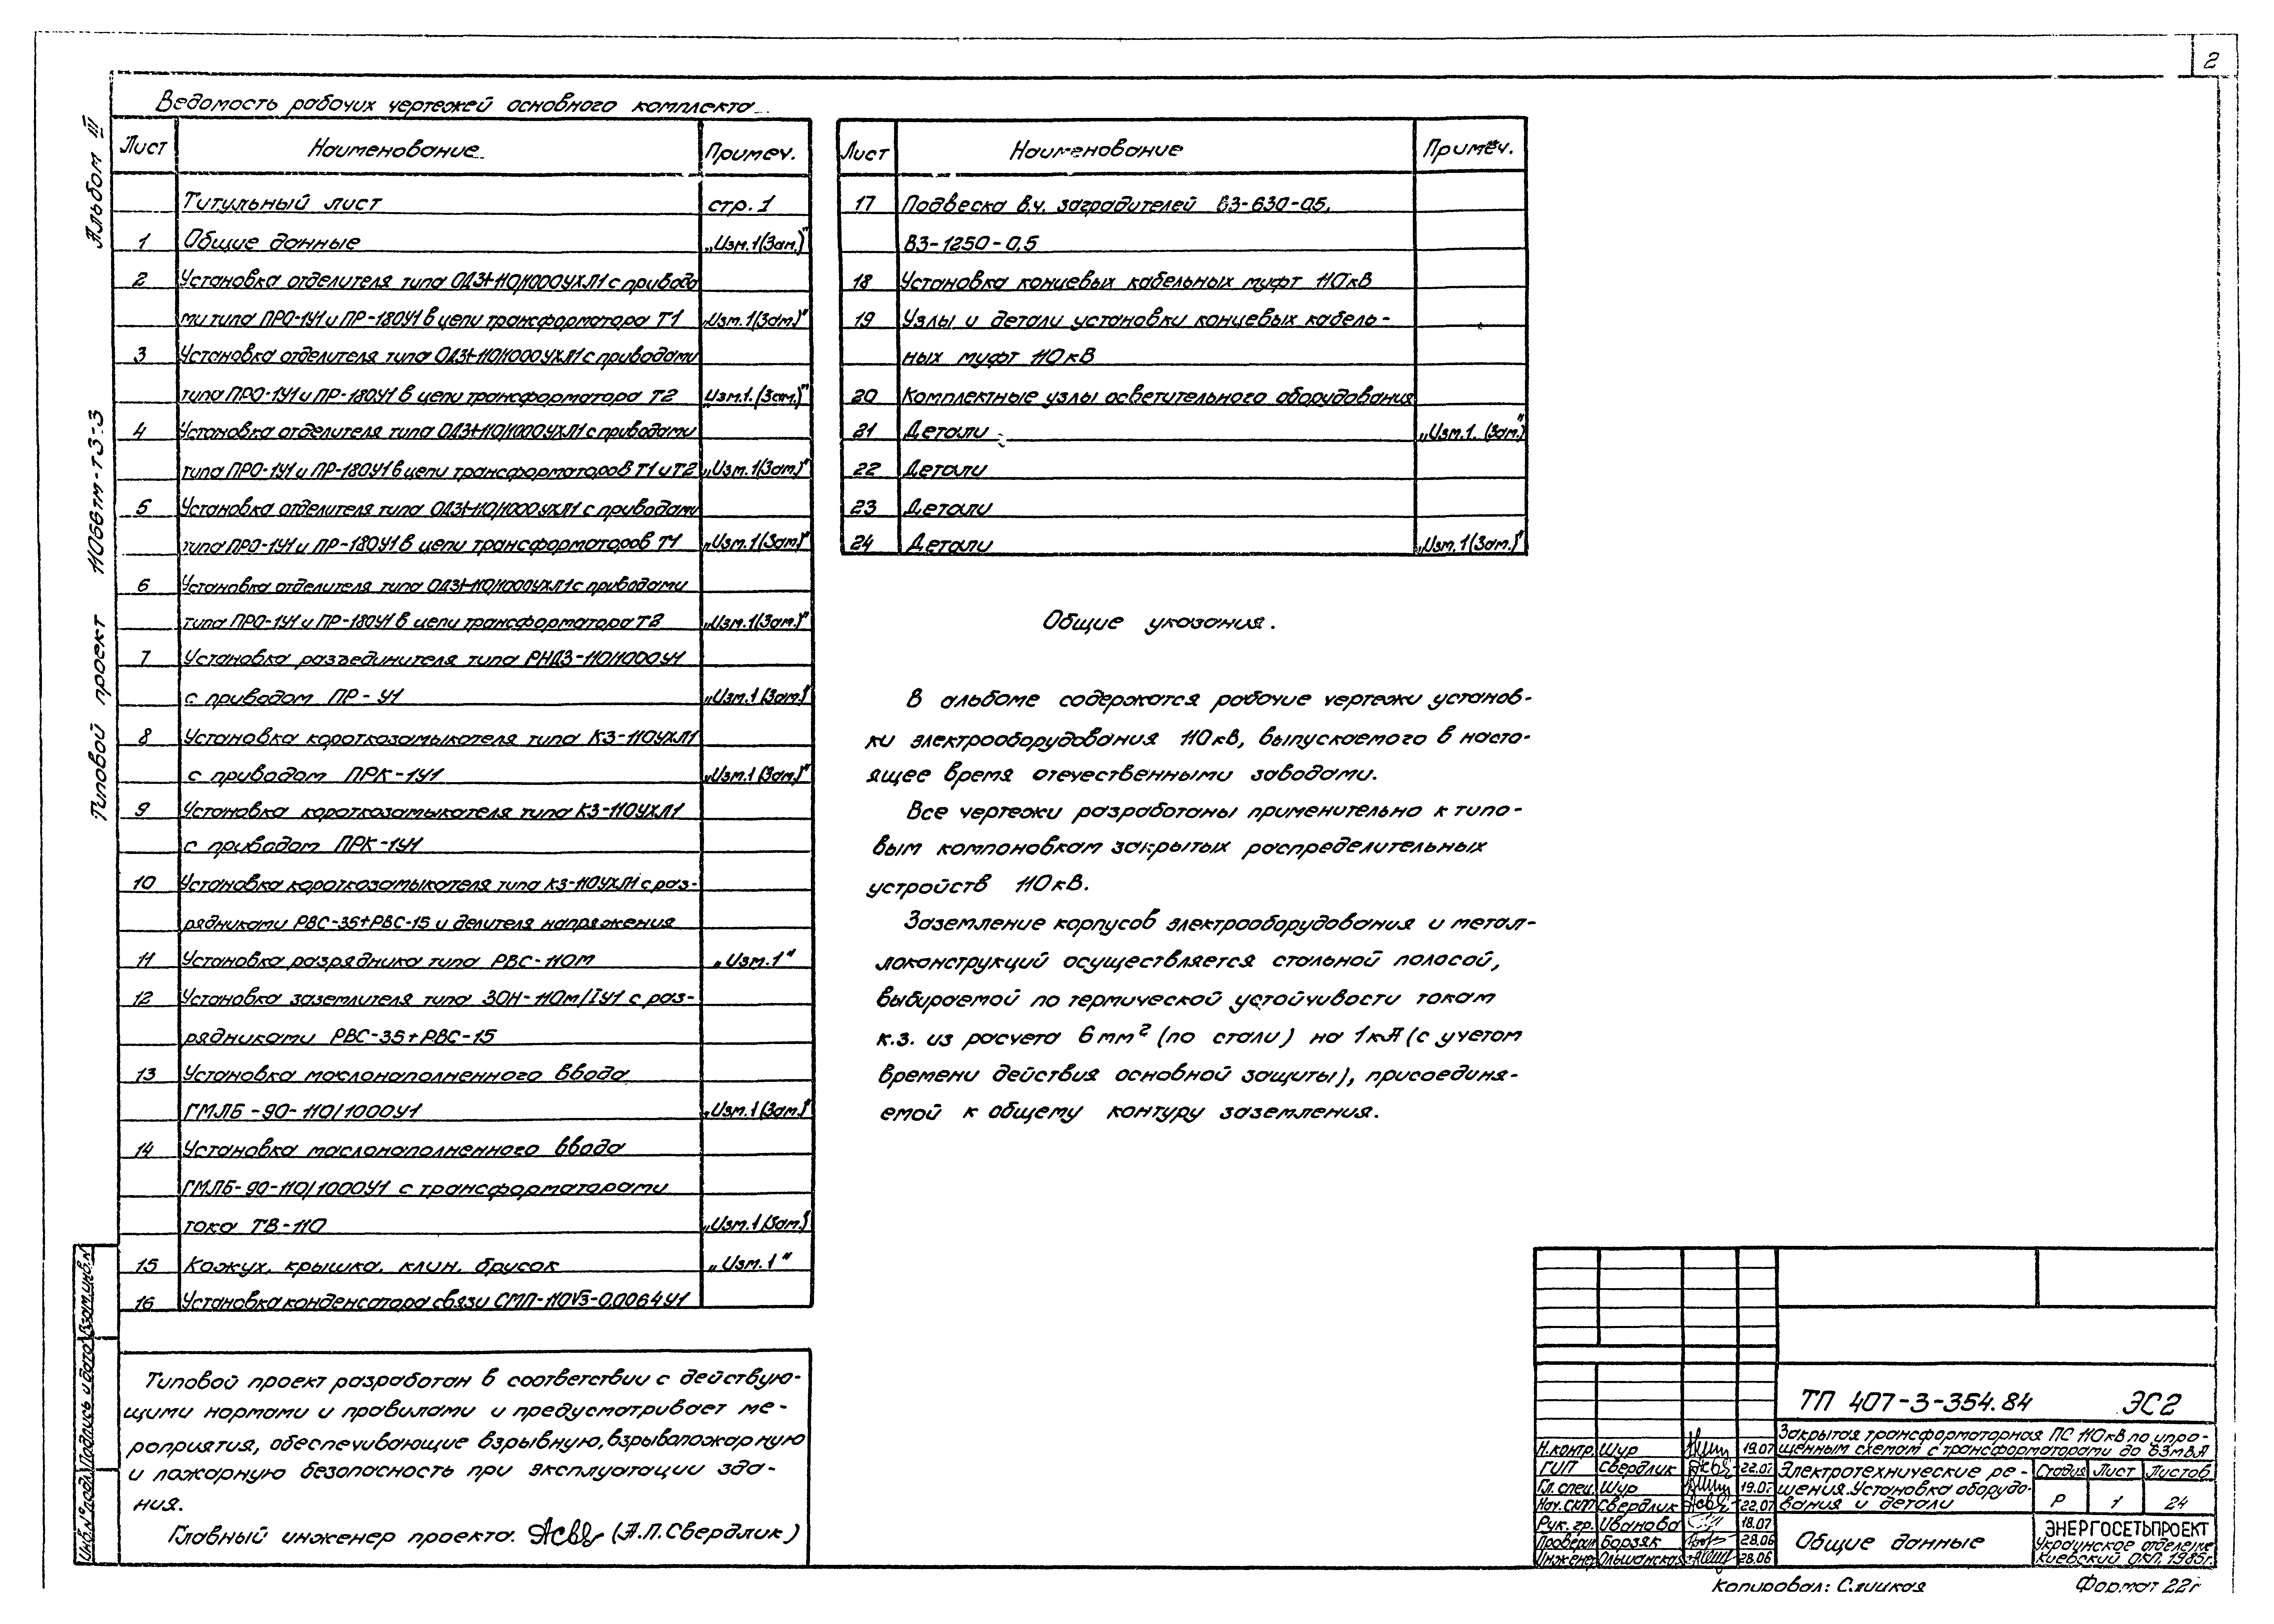 2
Альбом III
Типовой проект 11066тм-т3-3
Ведомость рабочих чертежей основного комплекта
Лист Наименование Примеч.
Титульный лист стр. 1
1 Общие данные „Изм.1(Зам.)"
2 Установка отделителя типа ОДЗ-1-110/1000УХЛ1 с привода
ми типа ПРО-1У1 и ПР-180У1 в цепи трансформатора Т1 „Изм.1(Зам.)"
3 Установка отделителя типа ОДЗ-1-110/1000УХЛ1 с приводами
типа ПРО-1У1 и ПР-180У1 в цепи трансформатора Т2 „Изм.1.(Зам.)"
4 Установка отделителя типа ОДЗ-1-110/1000УХЛ1 с приводами
типа ПРО-1У1 и ПР-180У1 в цепи трансформаторов Т1 и Т2 „Изм.1(Зам.)"
5 Установка отделителя типа ОДЗ-1-110/1000УХЛ1 с приводами
типа ПРО-1У1 и ПР-180У1 в цепи трансформаторов Т1 „Изм.1(Зам.)"
6 Установка отделителя типа ОДЗ-1-110/1000УХЛ1 с приводами
типа ПРО-1У1 и ПР-180У1 в цепи трансформатора Т2 „Изм.1(Зам.)"
7 Установка разъединителя типа РНДЗ-110/1000У1
с приводом ПР-У1 „Изм.1(Зам.)"
8 Установка короткозамыкателя типа КЗ-110УХЛ1
с приводом ПРК-1У1 „Изм.1(Зам.)"
9 Установка короткозамыкателя типа КЗ-110УХЛ1
с приводом ПРК-1У1
10 Установка короткозамыкателя типа КЗ-110УХЛ1 с раз-
рядниками РВС-35+РВС-15 и делителя напряжения
11 Установка разрядника типа РВС-110М „Изм.1"
12 Установка заземлителя типа ЗОН-110м/IУ1 с раз-
рядниками РВС-35+РВС-15
13 Установка маслонаполненного ввода
ГМЛБ-90-110/1000У1 „Изм.1(Зам.)"
14 Установка маслонаполненного ввода
ГМЛБ-90-110/1000У1 с трансформаторами
тока ТВ-110 „Изм.1(Зам.)"
15 Кожух, крышка, клин, брусок „Изм.1"
16 Установка конденсатора связи СМП-110√3-0,0064У1
Лист Наименование Примеч.
17 Подвеска в.ч. заградителей ВЗ-630-0,5,
ВЗ-1250-0,5
18 Установка концевых кабельных муфт 110кВ
19 Узлы и детали установки концевых кабель-
ных муфт 110кВ
20 Комплектные узлы осветительного оборудования
21 Детали „Изм.1.(Зам.)"
22 Детали
23 Детали
24 Детали „Изм.1(Зам.)"
Общие указания.
В альбоме содержатся рабочие чертежи установ-
ки электрооборудования 110кВ, выпускаемого в насто-
ящее время отечественными заводами.
Все чертежи разработаны применительно к типо-
вым компоновкам закрытых распределительных
устройств 110кВ.
Заземление корпусов электрооборудования и метал-
локонструкций осуществляется стальной полосой,
выбираемой по термической устойчивости токам
к.з. из расчета 6мм² (по стали) на 1кА (с учетом
времени действия основной защиты), присоединя-
емой к общему контуру заземления.
Типовой проект разработан в соответствии с действую-
щими нормами и правилами и предусматривает ме-
роприятия, обеспечивающие взрывную, взрывопожарную
и пожарную безопасность при эксплуатации зда-
ния.
Главный инженер проекта. (А.П.Свердлик)
Инв.№ подл. Подпись и дата Взам.инв.№
ТП 407-3-354.84 ЭС2
Закрытая трансформаторная ПС 110кВ по упро-
щенным схемам с трансформаторами до 63мВА
Н.контр. Шур 19.07
ГИП Свердлик 22.07
Гл.спец. Шур 19.07
Нач.СКТП Свердлик 22.07
Рук.гр. Иванова 18.07
Проверил Борзяк 28.06
Инженер Ольшанская 28.06
Электротехнические ре-
шения. Установка оборудо-
вания и детали
Стадия Лист Листов
Р 1 24
Общие данные
ЭНЕРГОСЕТЬПРОЕКТ
Украинское отделение
Киевский ОКП, 1985г.
Копировал: Слицкая
Формат 22г